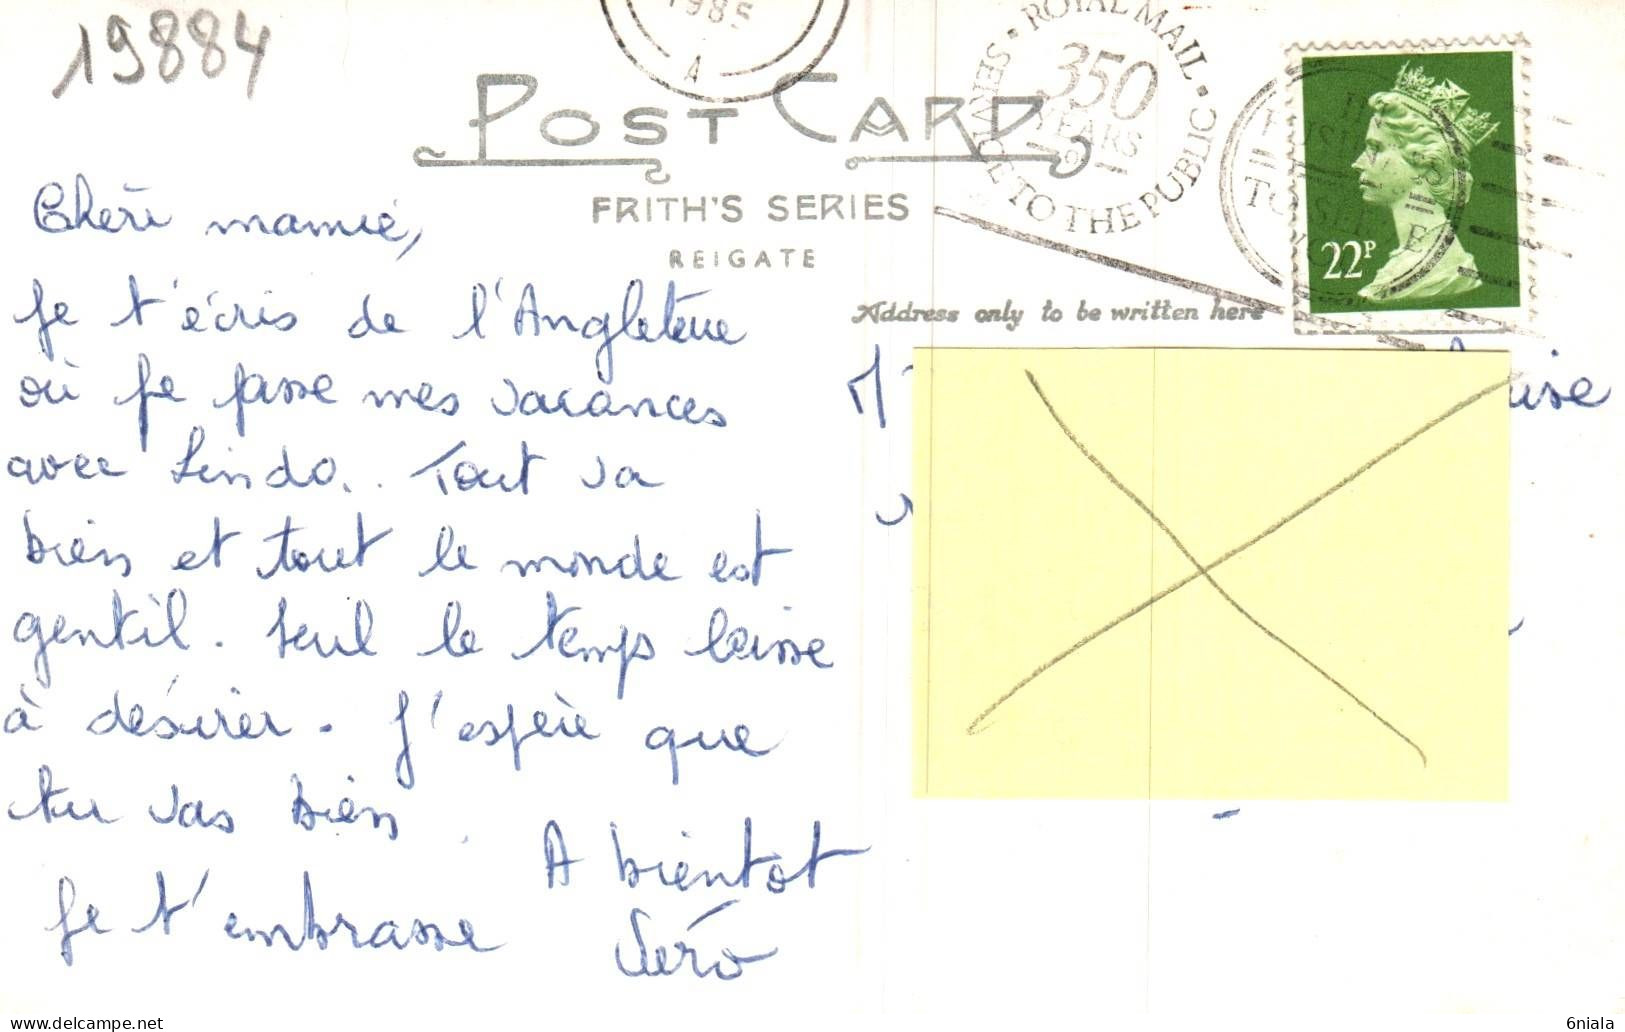 19884
1985
A
POST CARD
FRITH'S SERIES
REIGATE
ROYAL MAIL
350
YEARS
OF
SERVICE TO THE PUBLIC
22P
Address only to be written here
Chère mamie,
Je t'écris de l'Angleterre
où je passe mes vacances
avec Linda.. Tout va
bien et tout le monde est
gentil. Seul le temps laisse
à désirer. J'espère que
tu vas bien.
A bientot
Je t'embrasse
Véro
6niala